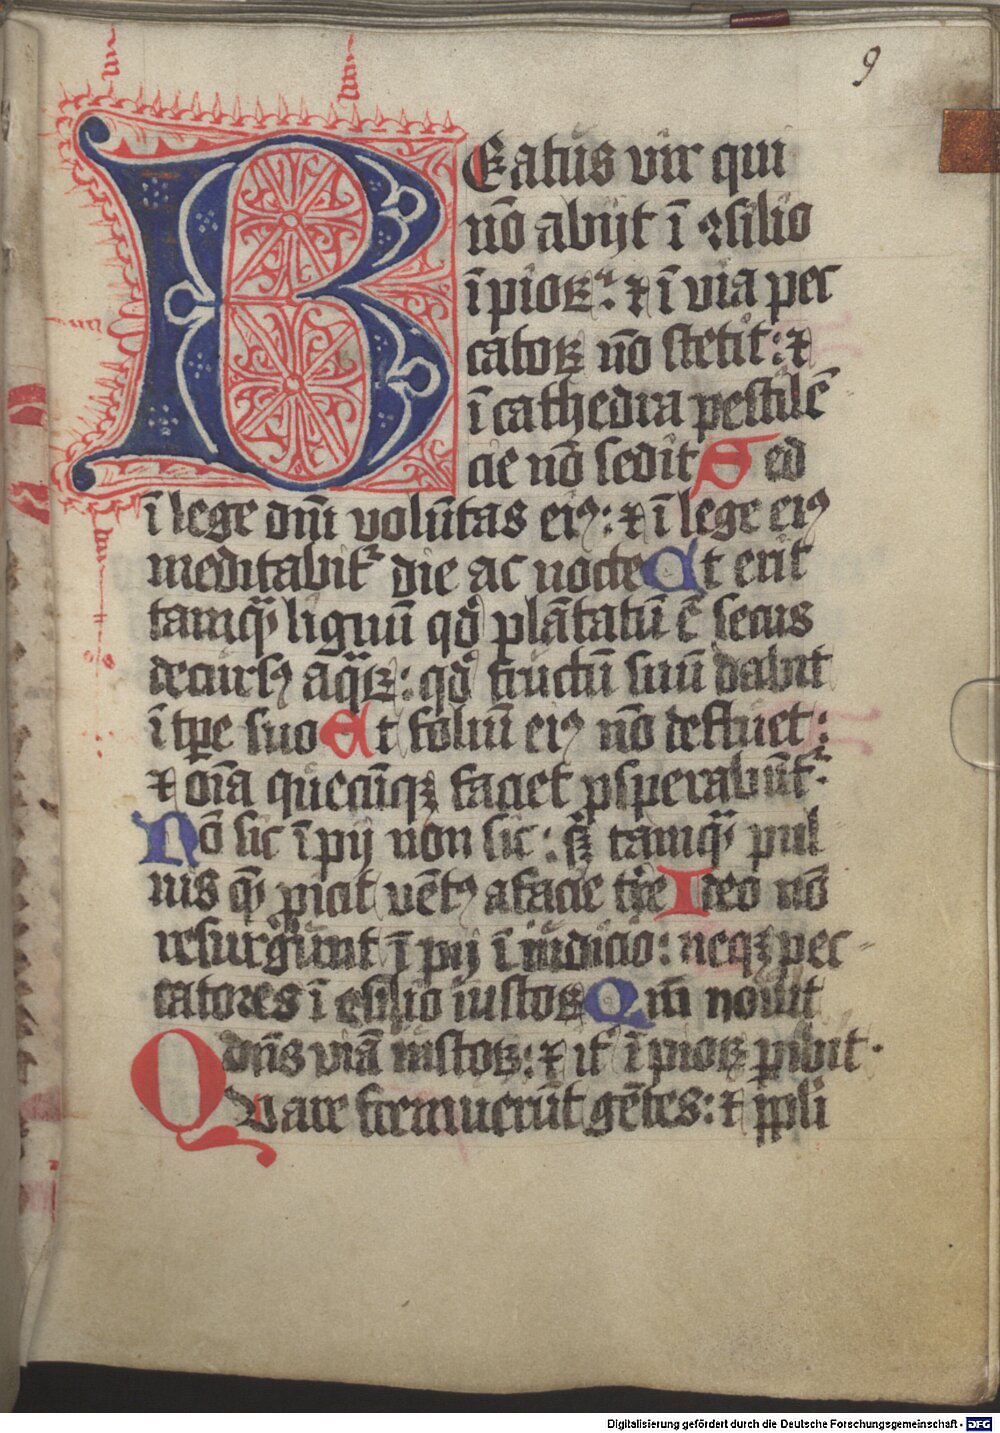 9
BEatus vir qui
nō abijt ī ꝯsilio
īpioꝝ: ⁊ ī via pec
catoꝝ nō stetit: ⁊
ī cathedra pestilē
cie nō sedit Sed
ī lege dn̄i volūtas eiꝰ: ⁊ ī lege eiꝰ
meditabit᷑ die ac nocte Et erit
tamqᷓ lignū qd̓ plātatū ē secus
decursꝰ aqᷓꝝ: qd̓ fructū suū dabit
ī tꝑe suo Et foliū eiꝰ nō defluet:
⁊ oīa quecūqꝫ faciet ꝓsperabūt᷑:
Nō sic īpij non sic: sꝫ tamqᷓ pul
uis qᷓ ꝓicit vētꝰ a facie tr̄e Ideo nō
resurgunt īpij ī iudicio: neqꝫ pec-
catores ī ꝯsilio iustoꝝ Qm̄ nouit
dn̄s viā iustoꝝ: ⁊ it̓ īpioꝝ ꝑibit.
QVare fremuerūt gētes: ⁊ ppl̓i
Digitalisierung gefördert durch die Deutsche Forschungsgemeinschaft - DFG